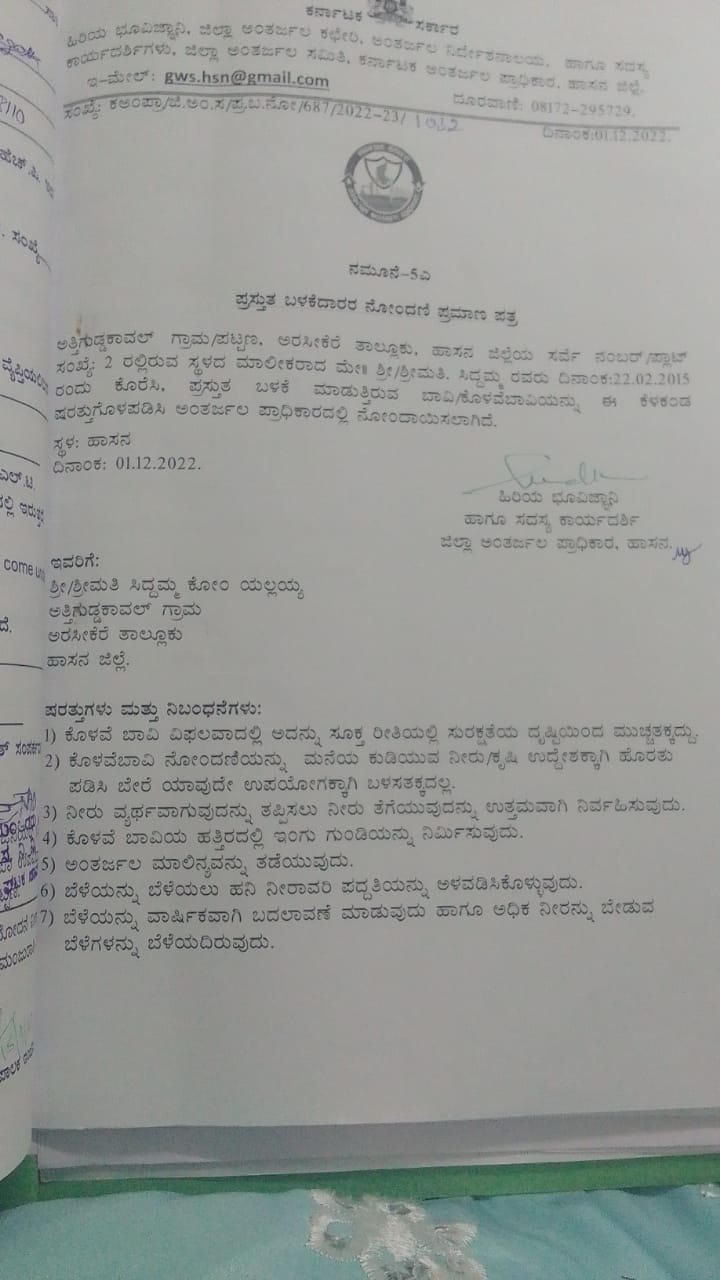 ಕರ್ನಾಟಕ ಸರ್ಕಾರ
ಹಿರಿಯ ಭೂವಿಜ್ಞಾನಿ, ಜಿಲ್ಲಾ ಅಂತರ್ಜಲ ಕಛೇರಿ, ಅಂತರ್ಜಲ ನಿರ್ದೇಶನಾಲಯ, ಹಾಗೂ ಸದಸ್ಯ
ಕಾರ್ಯದರ್ಶಿಗಳು, ಜಿಲ್ಲಾ ಅಂತರ್ಜಲ ಸಮಿತಿ, ಕರ್ನಾಟಕ ಅಂತರ್ಜಲ ಪ್ರಾಧಿಕಾರ, ಹಾಸನ ಜಿಲ್ಲೆ.
ಇ-ಮೇಲ್: gws.hsn@gmail.com ದೂರವಾಣಿ: 08172-295729.
ಸಂಖ್ಯೆ: ಕಅಂಪ್ರಾ/ಜಿ.ಅಂ.ಸ/ಪ್ರ.ಬ.ನೋ/687/2022-23/ 1032 ದಿನಾಂಕ:01.12.2022.
ನಮೂನೆ-5ಎ
ಪ್ರಸ್ತುತ ಬಳಕೆದಾರರ ನೋಂದಣಿ ಪ್ರಮಾಣ ಪತ್ರ
ಅತ್ತಿಗುಡ್ಡಕಾವಲ್ ಗ್ರಾಮ/ಪಟ್ಟಣ, ಅರಸೀಕೆರೆ ತಾಲ್ಲೂಕು, ಹಾಸನ ಜಿಲ್ಲೆಯ ಸರ್ವೆ ನಂಬರ್/ಪ್ಲಾಟ್
ಸಂಖ್ಯೆ: 2 ರಲ್ಲಿರುವ ಸ್ಥಳದ ಮಾಲೀಕರಾದ ಮೇ॥ ಶ್ರೀ/ಶ್ರೀಮತಿ. ಸಿದ್ದಮ್ಮ ರವರು ದಿನಾಂಕ:22.02.2015
ರಂದು ಕೊರೆಸಿ, ಪ್ರಸ್ತುತ ಬಳಕೆ ಮಾಡುತ್ತಿರುವ ಬಾವಿ/ಕೊಳವೆಬಾವಿಯನ್ನು ಈ ಕೆಳಕಂಡ
ಷರತ್ತುಗೊಳಪಡಿಸಿ ಅಂತರ್ಜಲ ಪ್ರಾಧಿಕಾರದಲ್ಲಿ ನೋಂದಾಯಿಸಲಾಗಿದೆ.
ಸ್ಥಳ: ಹಾಸನ
ದಿನಾಂಕ: 01.12.2022.
ಹಿರಿಯ ಭೂವಿಜ್ಞಾನಿ
ಹಾಗೂ ಸದಸ್ಯ ಕಾರ್ಯದರ್ಶಿ
ಜಿಲ್ಲಾ ಅಂತರ್ಜಲ ಪ್ರಾಧಿಕಾರ, ಹಾಸನ.
ಇವರಿಗೆ:
ಶ್ರೀ/ಶ್ರೀಮತಿ ಸಿದ್ದಮ್ಮ ಕೋಂ ಯಲ್ಲಯ್ಯ
ಅತ್ತಿಗುಡ್ಡಕಾವಲ್ ಗ್ರಾಮ
ಅರಸೀಕೆರೆ ತಾಲ್ಲೂಕು
ಹಾಸನ ಜಿಲ್ಲೆ.
ಷರತ್ತುಗಳು ಮತ್ತು ನಿಬಂಧನೆಗಳು:
1) ಕೊಳವೆ ಬಾವಿ ವಿಫಲವಾದಲ್ಲಿ ಅದನ್ನು ಸೂಕ್ತ ರೀತಿಯಲ್ಲಿ ಸುರಕ್ಷತೆಯ ದೃಷ್ಟಿಯಿಂದ ಮುಚ್ಚತಕ್ಕದ್ದು.
2) ಕೊಳವೆಬಾವಿ ನೋಂದಣಿಯನ್ನು ಮನೆಯ ಕುಡಿಯುವ ನೀರು/ಕೃಷಿ ಉದ್ದೇಶಕ್ಕಾಗಿ ಹೊರತು
ಪಡಿಸಿ ಬೇರೆ ಯಾವುದೇ ಉಪಯೋಗಕ್ಕಾಗಿ ಬಳಸತಕ್ಕದಲ್ಲ.
3) ನೀರು ವ್ಯರ್ಥವಾಗುವುದನ್ನು ತಪ್ಪಿಸಲು ನೀರು ತೆಗೆಯುವುದನ್ನು ಉತ್ತಮವಾಗಿ ನಿರ್ವಹಿಸುವುದು.
4) ಕೊಳವೆ ಬಾವಿಯ ಹತ್ತಿರದಲ್ಲಿ ಇಂಗು ಗುಂಡಿಯನ್ನು ನಿರ್ಮಿಸುವುದು.
5) ಅಂತರ್ಜಲ ಮಾಲಿನ್ಯವನ್ನು ತಡೆಯುವುದು.
6) ಬೆಳೆಯನ್ನು ಬೆಳೆಯಲು ಹನಿ ನೀರಾವರಿ ಪದ್ದತಿಯನ್ನು ಅಳವಡಿಸಿಕೊಳ್ಳುವುದು.
7) ಬೆಳೆಯನ್ನು ವಾರ್ಷಿಕವಾಗಿ ಬದಲಾವಣೆ ಮಾಡುವುದು ಹಾಗೂ ಅಧಿಕ ನೀರನ್ನು ಬೇಡುವ
ಬೆಳೆಗಳನ್ನು ಬೆಳೆಯದಿರುವುದು.